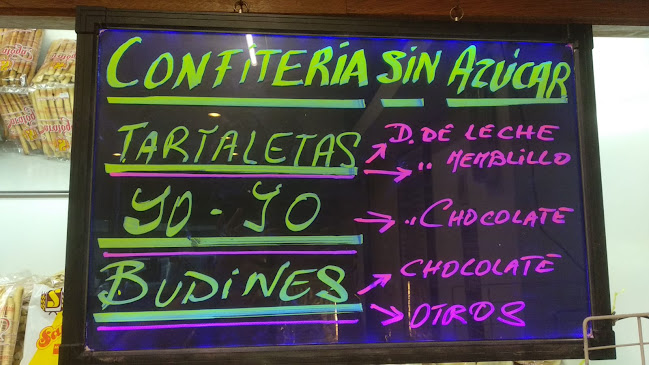 CONFITERIA SIN AZÚCAR
TARTALETAS
D. DE LECHE
" MEMBLILLO
YO-YO
" CHOCOLATE
BUDINES
CHOCOLATE
OTROS